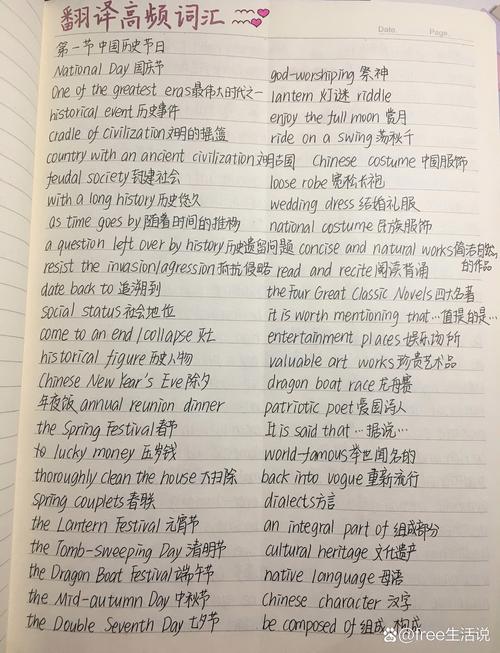 翻译高频词汇
Date.
Page.
第一节 中国历史节日
National Day 国庆节
One of the greatest eras最伟大时代之一
historical event 历史事件
cradle of civilization文明的摇篮
country with an ancient civilization文明古国
feudal society 封建社会
with a long history 历史悠久
as time goes by 随着时间的推移
a question left over by history历史遗留问题
resist the invasion/agression 抵抗侵略
date back to 追溯到
social status 社会地位
come to an end/collapse 灭亡
historical figure 历史人物
Chinese New Year's Eve 除夕
年夜饭 annual reunion dinner
the Spring Festival 春节
to lucky money 压岁钱
thoroughly clean the house 大扫除
spring couplets 春联
the Lantern Festival 元宵节
the Tomb-sweeping Day 清明节
the Dragon Boat Festival 端午节
the Mid-autumn Day 中秋节
the Double Seventh Day 七夕节
god-worshiping 祭神
lantern 灯谜 riddle
enjoy the full moon 赏月
ride on a swing 荡秋千
Chinese costume 中国服饰
loose robe 宽松长袍
wedding dress 结婚礼服
national costume 民族服饰
concise and natural works 简洁自然
的作品
read and recite 阅读背诵
the Four Great Classic Novels 四大名著
it is worth mentioning that…值提的是…
entertainment places 娱乐场所
valuable art works 珍贵艺术品
dragon boat race 龙舟赛
patriotic poet 爱国诗人
It is said that…据说…
world-famous 举世闻名的
back into vogue 重新流行
dialects 方言
an integral part of 组成部分
cultural heritage 文化遗产
native language 母语
Chinese character 汉字
be composed of 组成、构成
@free生活说